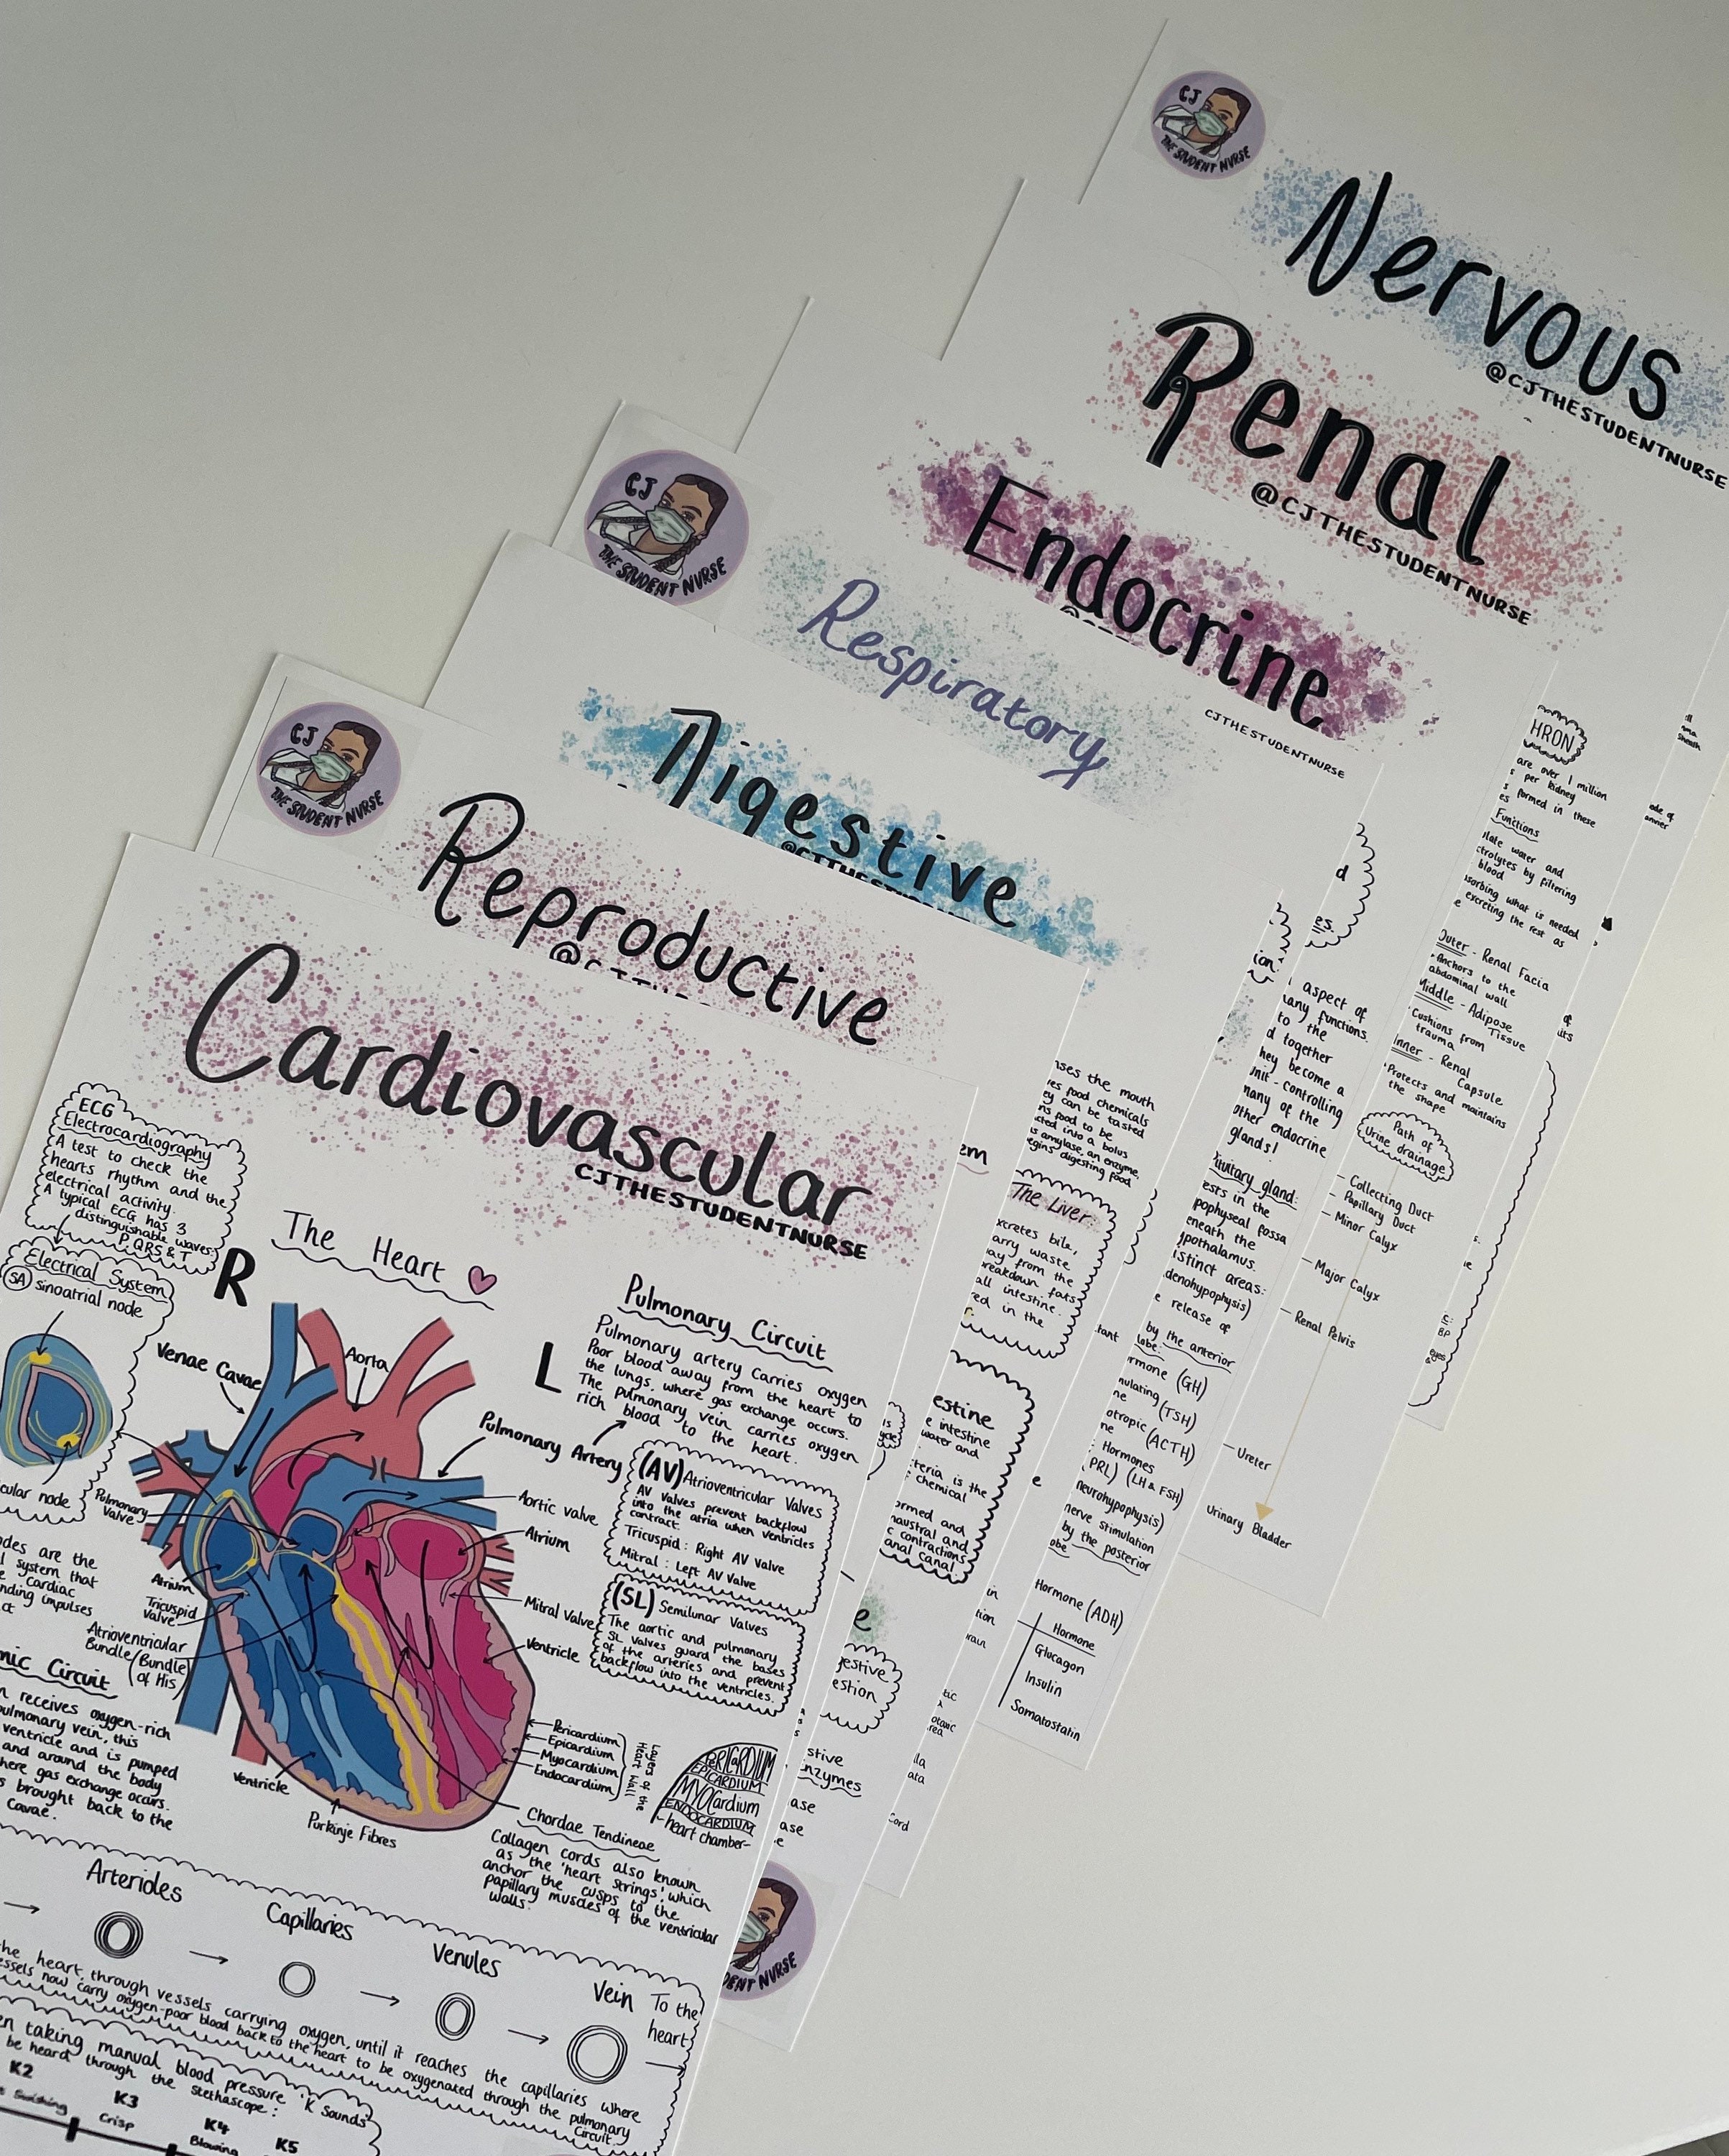 CJ
THE STUDENT NURSE
Nervous
@CJTHESTUDENTNURSE
Renal
@CJTHESTUDENTNURSE
Endocrine
CJTHESTUDENTNURSE
CJ
THE STUDENT NURSE
Respiratory
Digestive
@CJTHESTUDENT
CJ
THE STUDENT NURSE
Reproductive
Cardiovascular
CJTHESTUDENTNURSE
ECG
Electrocardiography
A test to check the
hearts rhythm and the
electrical activity.
A typical ECG has 3
distinguishable waves:
P, QRS & T
Electrical System
(SA) sinoatrial node
cular node
odes are the
l system that
e cardiac
nding impulses
ct
The Heart
R
L
Venae Cavae
Aorta
Pulmonary Artery
Pulmonary
Valve
Aortic valve
Atrium
Mitral Valve
Ventricle
Atrium
Tricuspid
Valve
Atrioventricular
Bundle (Bundle
of His)
Ventricle
Purkinje Fibres
Pericardium
Epicardium
Myocardium
Endocardium
Layers of the
Heart Wall
PERICARDIUM
EPICARDIUM
MYOCardium
ENDOCARDIUM
heart chamber
Pulmonary Circuit
Pulmonary artery carries oxygen
Poor blood away from the heart to
the lungs, where gas exchange occurs.
The pulmonary vein carries oxygen
rich blood to the heart.
(AV) Atrioventricular Valves
AV Valves prevent backflow
into the atria when ventricles
contract.
Tricuspid : Right AV Valve
Mitral : Left AV Valve
(SL) Semilunar Valves
The aortic and pulmonary
SL valves guard the bases
of the arteries and prevent
backflow into the ventricles.
Chordae Tendineae
Collagen cords also known
as the 'heart strings', which
anchor the cusps to the
papillary muscles of the ventricular
walls.
mic Circuit
n receives oxygen-rich
pulmonary vein, this
ventricle and is pumped
and around the body
here gas exchange occurs.
s brought back to the
Cavae.
Arterioles
Capillaries
Venules
Vein
To the
heart
the heart through vessels carrying oxygen, until it reaches the capillaries where
essels now carry oxygen-poor blood back to the heart to be oxygenated through the pulmonary
Circuit.
en taking manual blood pressure 'K Sounds'
be heard through the stethascope:
K2
Swishing
K3
Crisp
K4
Blowing
K5
em
nses the mouth
ves food chemicals
ey can be tasted
ns food to be
cted into a bolus
s amylase, an enzyme,
egins digesting food
The Liver:
xcretes bile,
arry waste
ay from the
breakdown fats
all intestine.
red in the
estine
e intestine
water and
teria is the
chemical
ormed and
haustral and
c contractions
anal canal.
e
gestive
estion
stive
enzymes
ase
ase
e
DENT NURSE
Cord
tant
d
es.
ion:
aspect of
many functions.
to the
d together
hey become a
unit - controlling
many of the
other endocrine
glands!
Pituitary gland:
ests in the
pophyseal fossa
eneath the
ypothalamus.
istinct areas:
denohypophysis)
e release of
by the anterior
lobe:
rmone (GH)
mulating (TSH)
ne
otropic (ACTH)
ne
Hormones
PRL) (LH & FSH)
neurohypophysis)
nerve stimulation
by the posterior
obe
Hormone (ADH)
Hormone
Glucagon
Insulin
Somatostatin
HRON
are over 1 million
s per kidney
s formed in these
Functions
ulate water and
ctrolytes by filtering
blood
bsorbing what is needed
excreting the rest as
e
Outer - Renal Facia
Anchors to the
abdominal wall
Middle - Adipose
Tissue
Cushions from
trauma
Inner - Renal
Capsule
Protects and maintains
the shape
Path of
Urine drainage
Collecting Duct
Papillary Duct
Minor Calyx
Major Calyx
Renal Pelvis
Ureter
Urinary Bladder
ode of
anvier
BP
eyes
&